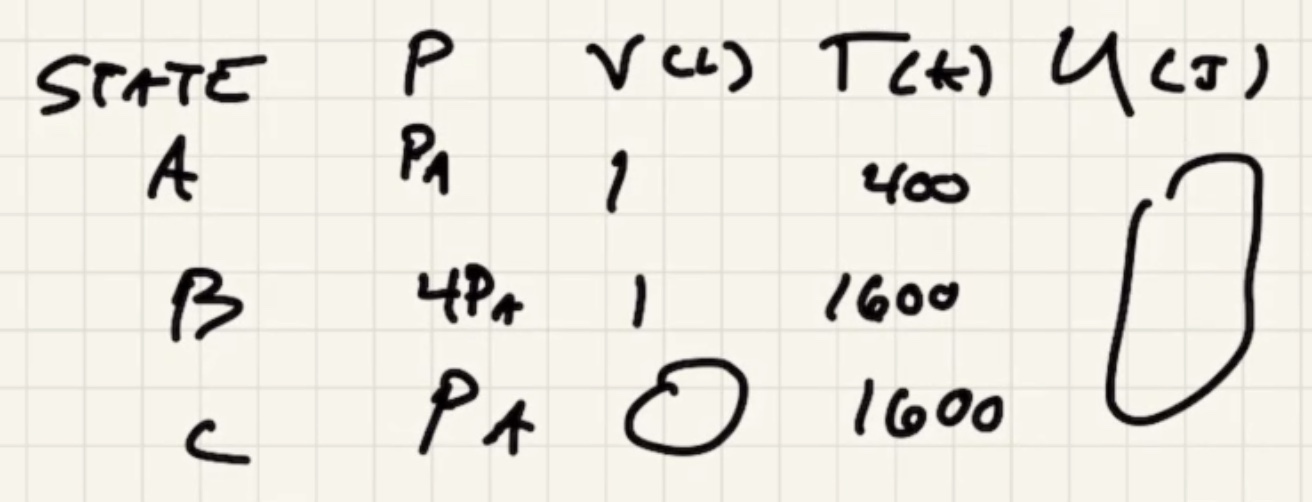 STATE P V(L) T(K) U(J)
A PA 1 400
B 4PA 1 1600
C PA 1600